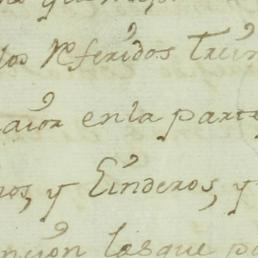 los referidos trein
aior en la parte
ros, y Linderos, y
ncion los que po